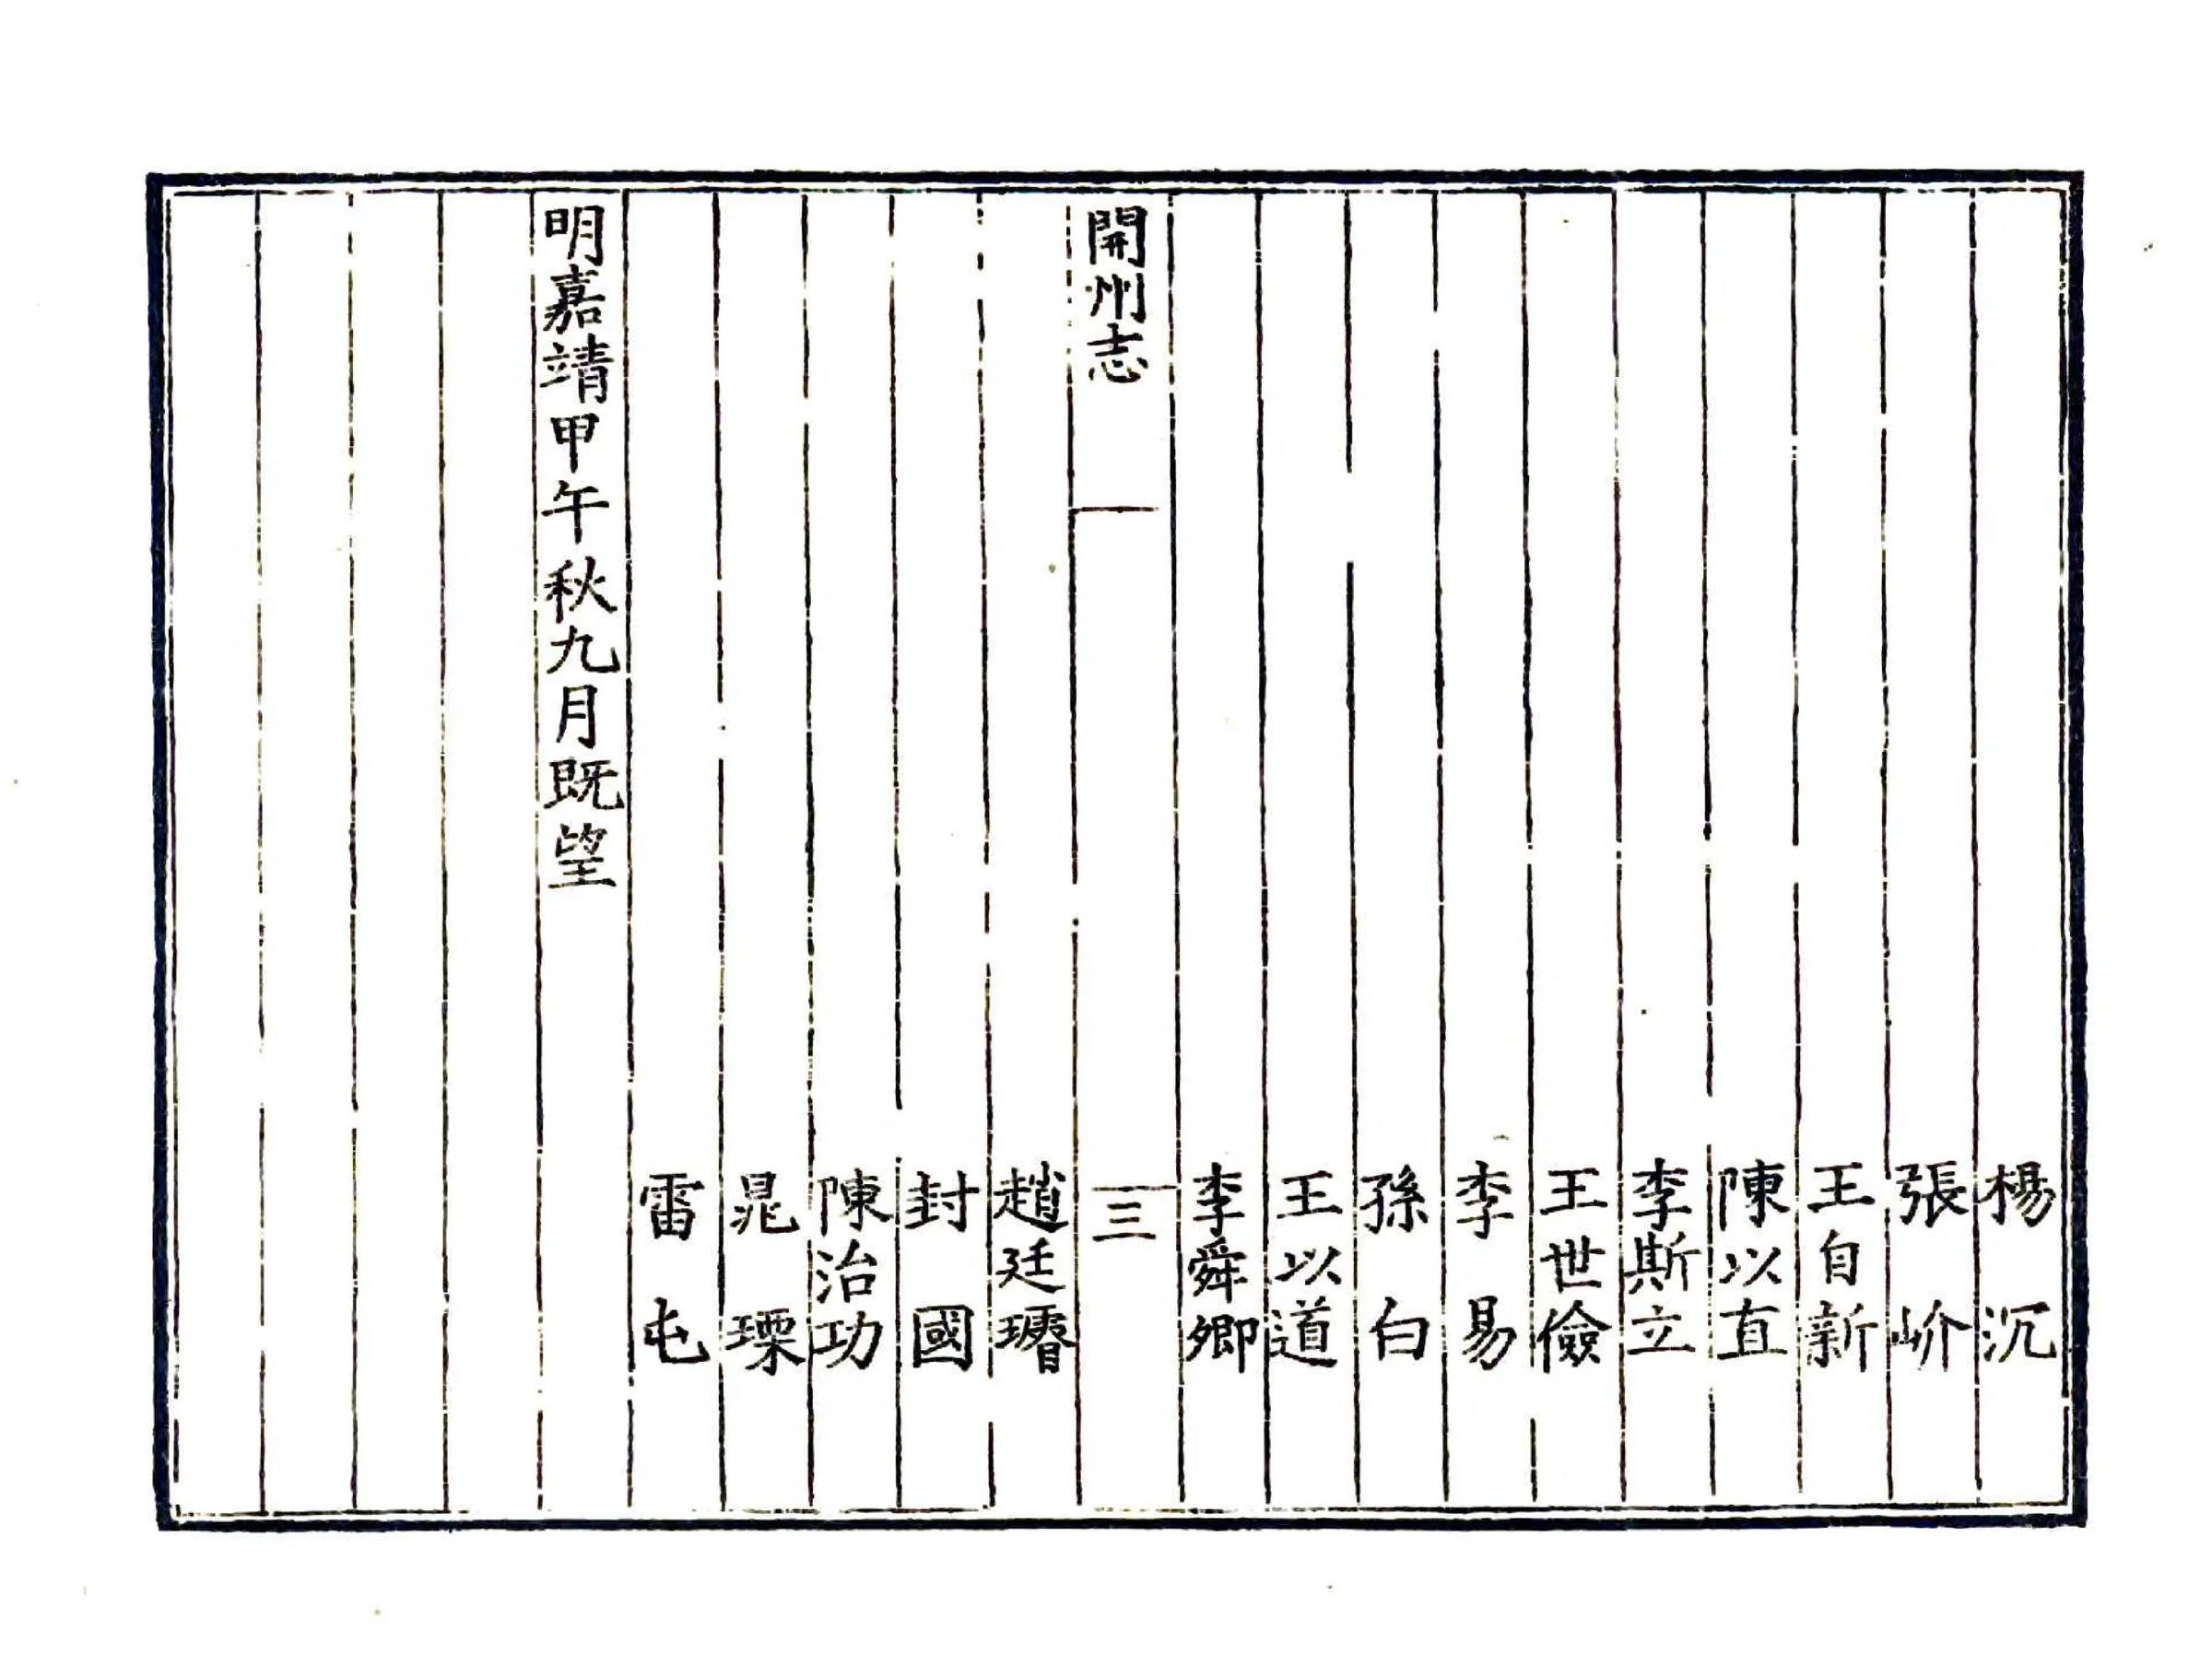 楊沉
張岕
王自新
陳以直
李斯立
王世儉
李易
孫白
王以道
李舜卿
開州志
三
趙廷璿
封國
陳治功
晁瑮
雷屯
明嘉靖甲午秋九月既望